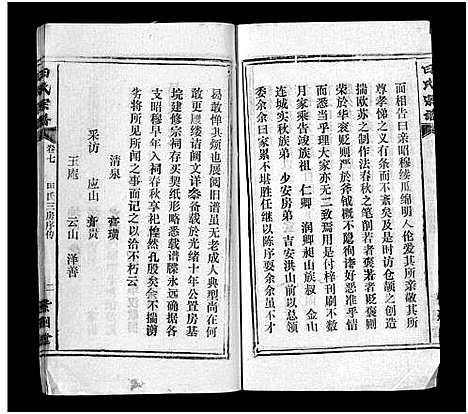 田氏宗譜
而相告曰亲昭穆缕瓜绵明人伦爱其所亲敬其所
尊孝悌之义有条而不紊矣及是时访仓颉之创造
揣欧苏之制作法春秋之笔削若者褒若者贬褒则
荣於华衮贬则严於斧钺概不隐徇凑好恶准乎情
而悉当乎理大家亦无二致焉用是付梓刊刷不数
月家乘告竣族祖　仁卿　润卿昶山族叔　金山
连城实秋族弟　少安房弟　吉安洪山前以总领
委余余曰家累不堪胜任继以陈序委余余虽不才
易敢惮其烦也展阅旧谱虽无老成人典型尚在何
敢更为屡缕请阅文详本备载於光绪十年公置房基
境建修宗祠存买契纸形略悉载谱牒永远确据各
支昭穆早年入祠春秋享祀惶然孔殷矣今不揣谫
劣将所见所闻之事而记之以洽不朽云
清泉　　奋璜
采访　应山　奋贵
王庵　　云山　泽善
田氏宗谱
卷七
田氏三房序传
二
紫荆堂